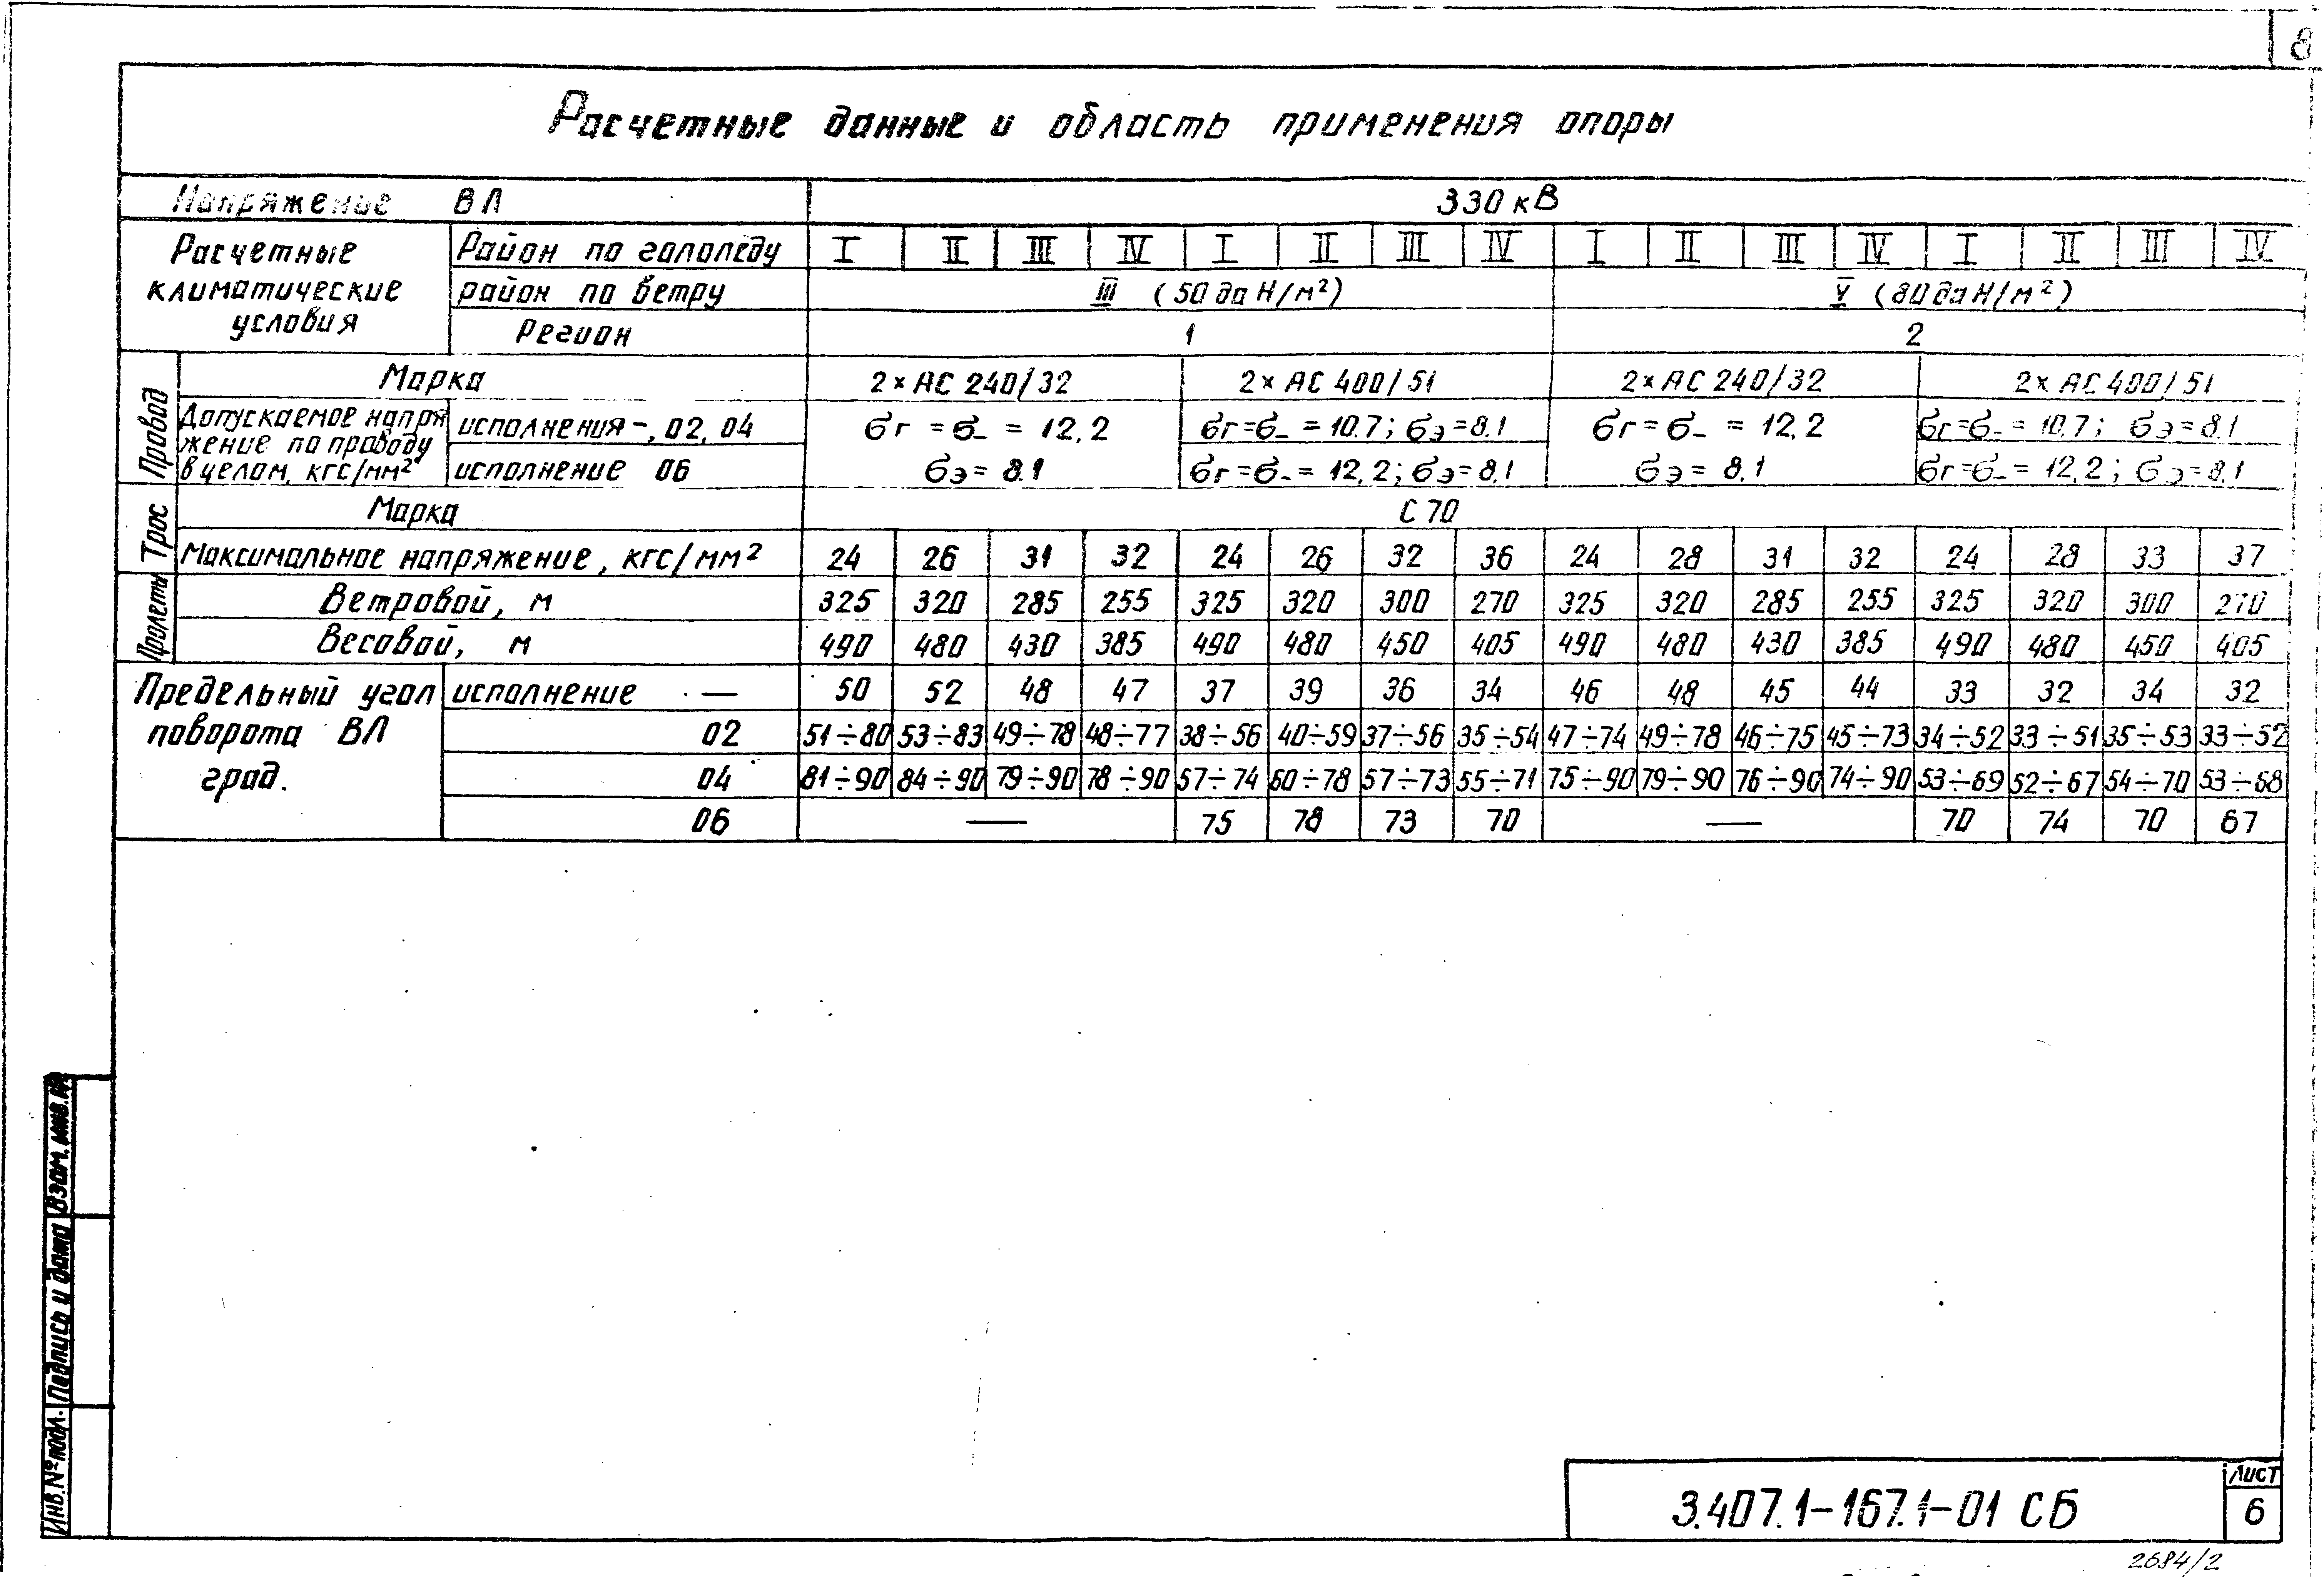 8
Расчетные данные и область применения опоры
Напряжение ВЛ 330 кВ
Расчетные климатические условия
Район по гололеду I II III IV I II III IV I II III IV I II III IV
район по ветру III (50 да Н/м²) V (80 да Н/м²)
Регион 1 2
Провод
Марка 2×АС 240/32 2×АС 400/51 2×АС 240/32 2×АС 400/51
Допускаемое напряжение по проводу в целом, кгс/мм²
исполнения -, 02, 04 σг = σ- = 12,2 σг=σ- = 10.7; σэ=8.1 σг = σ- = 12,2 σг=σ- = 10,7; σэ=8.1
исполнение 06 σэ = 8.1 σг=σ- = 12,2; σэ=8,1 σэ = 8,1 σг=σ- = 12,2; σэ=8.1
Трос
Марка С 70
Максимальное напряжение, кгс/мм² 24 26 31 32 24 26 32 36 24 28 31 32 24 28 33 37
Пролеты
Ветровой, м 325 320 285 255 325 320 300 270 325 320 285 255 325 320 300 270
Весовой, м 490 480 430 385 490 480 450 405 490 480 430 385 490 480 450 405
Предельный угол поворота ВЛ град.
исполнение — 50 52 48 47 37 39 36 34 46 48 45 44 33 32 34 32
02 51÷80 53÷83 49÷78 48÷77 38÷56 40÷59 37÷56 35÷54 47÷74 49÷78 46÷75 45÷73 34÷52 33÷51 35÷53 33÷52
04 81÷90 84÷90 79÷90 78÷90 57÷74 60÷78 57÷73 55÷71 75÷90 79÷90 76÷90 74÷90 53÷69 52÷67 54÷70 53÷68
06 — 75 78 73 70 — 70 74 70 67
Взам. инв.№
Подпись и дата
Инв.№подл.
3.407.1-167.1-01 СБ
Лист
6
2684/2